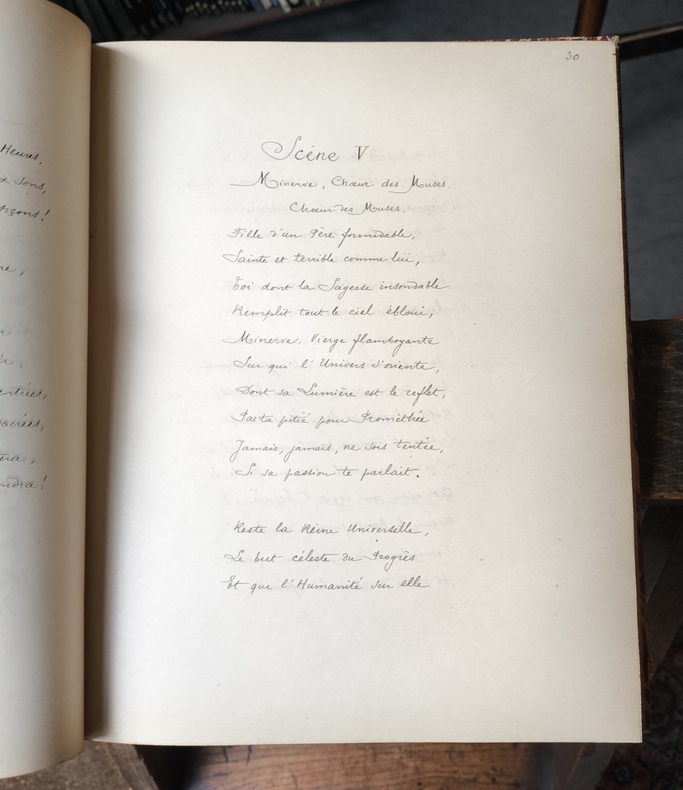 Heures,
Sons,
!
30
Scène V
Minerve, Chœur des Muses.
Chœur des Muses.
Fille d'un Père formidable,
Sainte et terrible comme lui,
Toi dont la Sagesse insondable
Remplit tout le ciel ébloui,
Minerve, Vierge flamboyante
Sur qui l'Univers s'oriente,
Dont sa Lumière est le reflet,
Par ta pitié pour Prométhée
Jamais, jamais, ne sois tentée,
Si sa passion te parlait.
Reste la Reine Universelle,
Le but céleste du Progrès
Et que l'Humanité sur elle